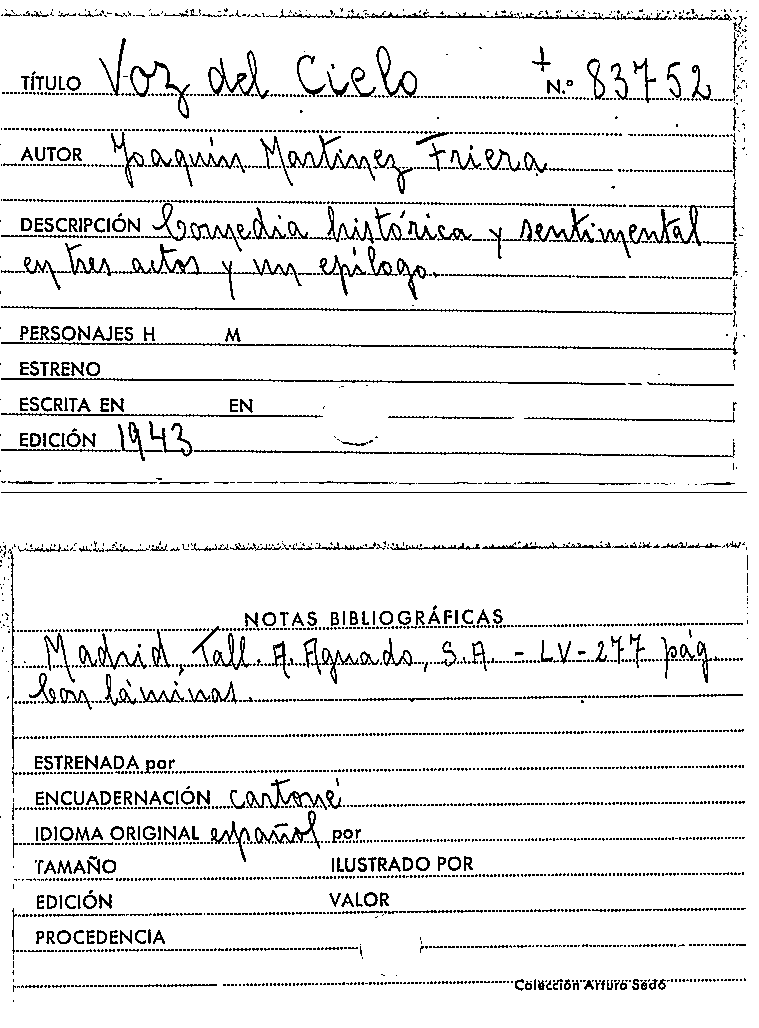 TÍTULO Voz del Cielo + N.º 83752
AUTOR Joaquín Martinez Friera
DESCRIPCIÓN Comedia histórica y sentimental
en tres actos y un epílogo.
PERSONAJES H M
ESTRENO
ESCRITA EN EN
EDICIÓN 1943
NOTAS BIBLIOGRÁFICAS
Madrid, Tall. A. Aguado, S.A. - LV-277 pág.
Con láminas.
ESTRENADA por
ENCUADERNACIÓN cartoné
IDIOMA ORIGINAL español por
TAMAÑO ILUSTRADO POR
EDICIÓN VALOR
PROCEDENCIA
Colección Arturo Sedó